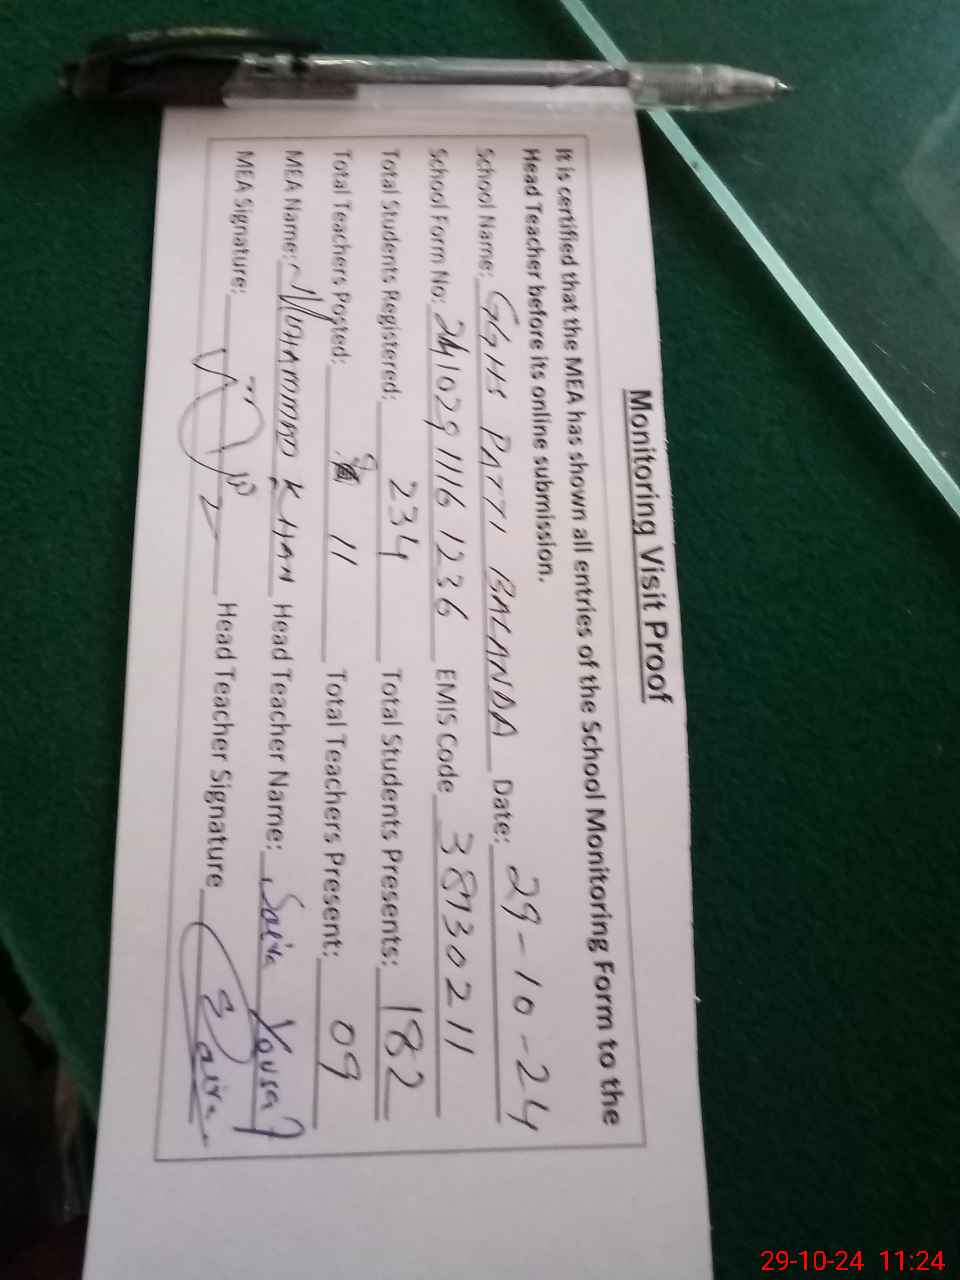 Monitoring Visit Proof
It is certified that the MEA has shown all entries of the School Monitoring Form to the
Head Teacher before its online submission.
School Name: GGHS PATTI BALANDA Date: 29-10-24
School Form No: 2410291116 1236 EMIS Code 38730211
Total Students Registered: 234 Total Students Presents: 182
Total Teachers Posted: 11 Total Teachers Present: 09
MEA Name: MUHAMMAD KHAN Head Teacher Name: Saira Yousaf
MEA Signature: Head Teacher Signature Saira
29-10-24 11:24